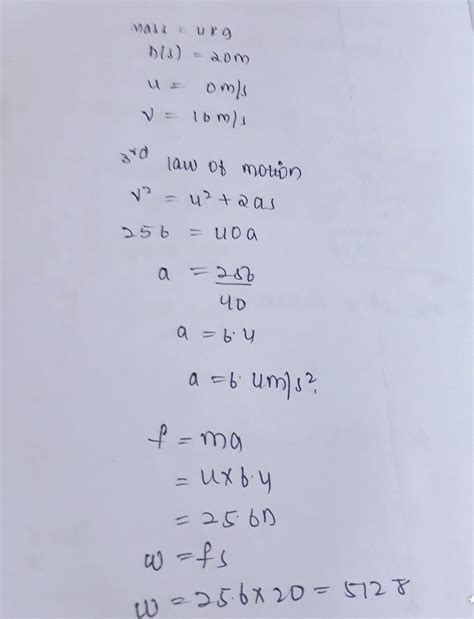 mass = 4kg
D(s) = 20m
u = 0m/s
v = 16m/s
3rd law of motion
v² = u² + 2as
256 = 40a
a = 256/40
a = 6.4
a = 6.4m/s²
f = ma
= 4x6.4
= 25.6N
w = fs
w = 25.6 x 20 = 512 J